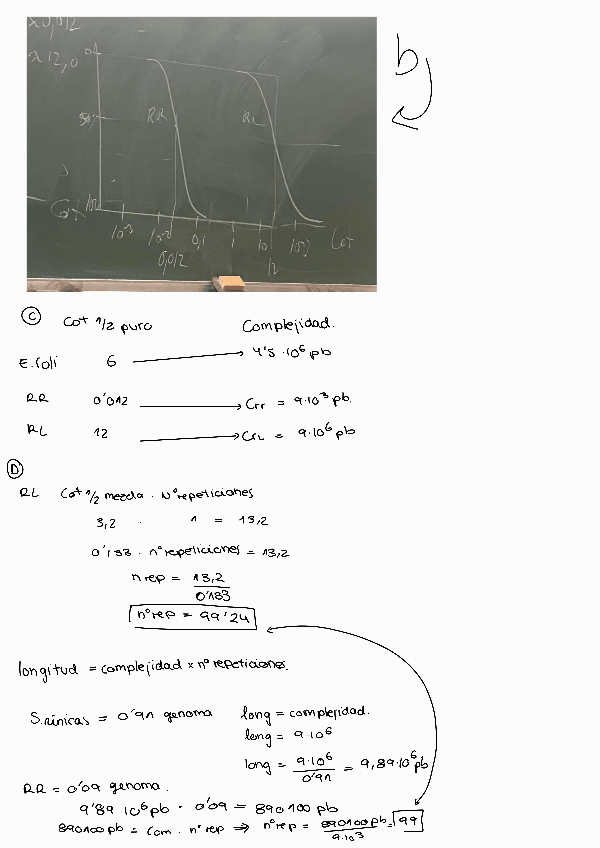 x0,012
x12,0
0%
50%
RR
RL
100
10⁻³
10⁻²
0,1
1
10
100
Cot
0,012
12
b
C
Cot 1/2 puro Complejidad.
E.Coli 6 → 4'5 · 10⁶ pb
RR 0'012 → Crr = 9·10³ pb.
RL 12 → CRL = 9·10⁶ pb
D
RL Cot 1/2 mezcla · Nº repeticiones
3,2 · 1 = 13,2
0'133 · nº repeticiones = 13,2
n rep = 13,2 / 0'133
nº rep = 99'24
longitud = complejidad x nº repeticiones.
S. únicas = 0'91 genoma long = complejidad.
long = 9·10⁶
long = 9·10⁶ / 0'91 = 9,89·10⁶ pb
RR = 0'09 genoma.
9'89 · 10⁶ pb · 0'09 = 890100 pb
890100 pb = Com. nº rep ⇒ nº rep = 890100 pb / 9·10³ = 99